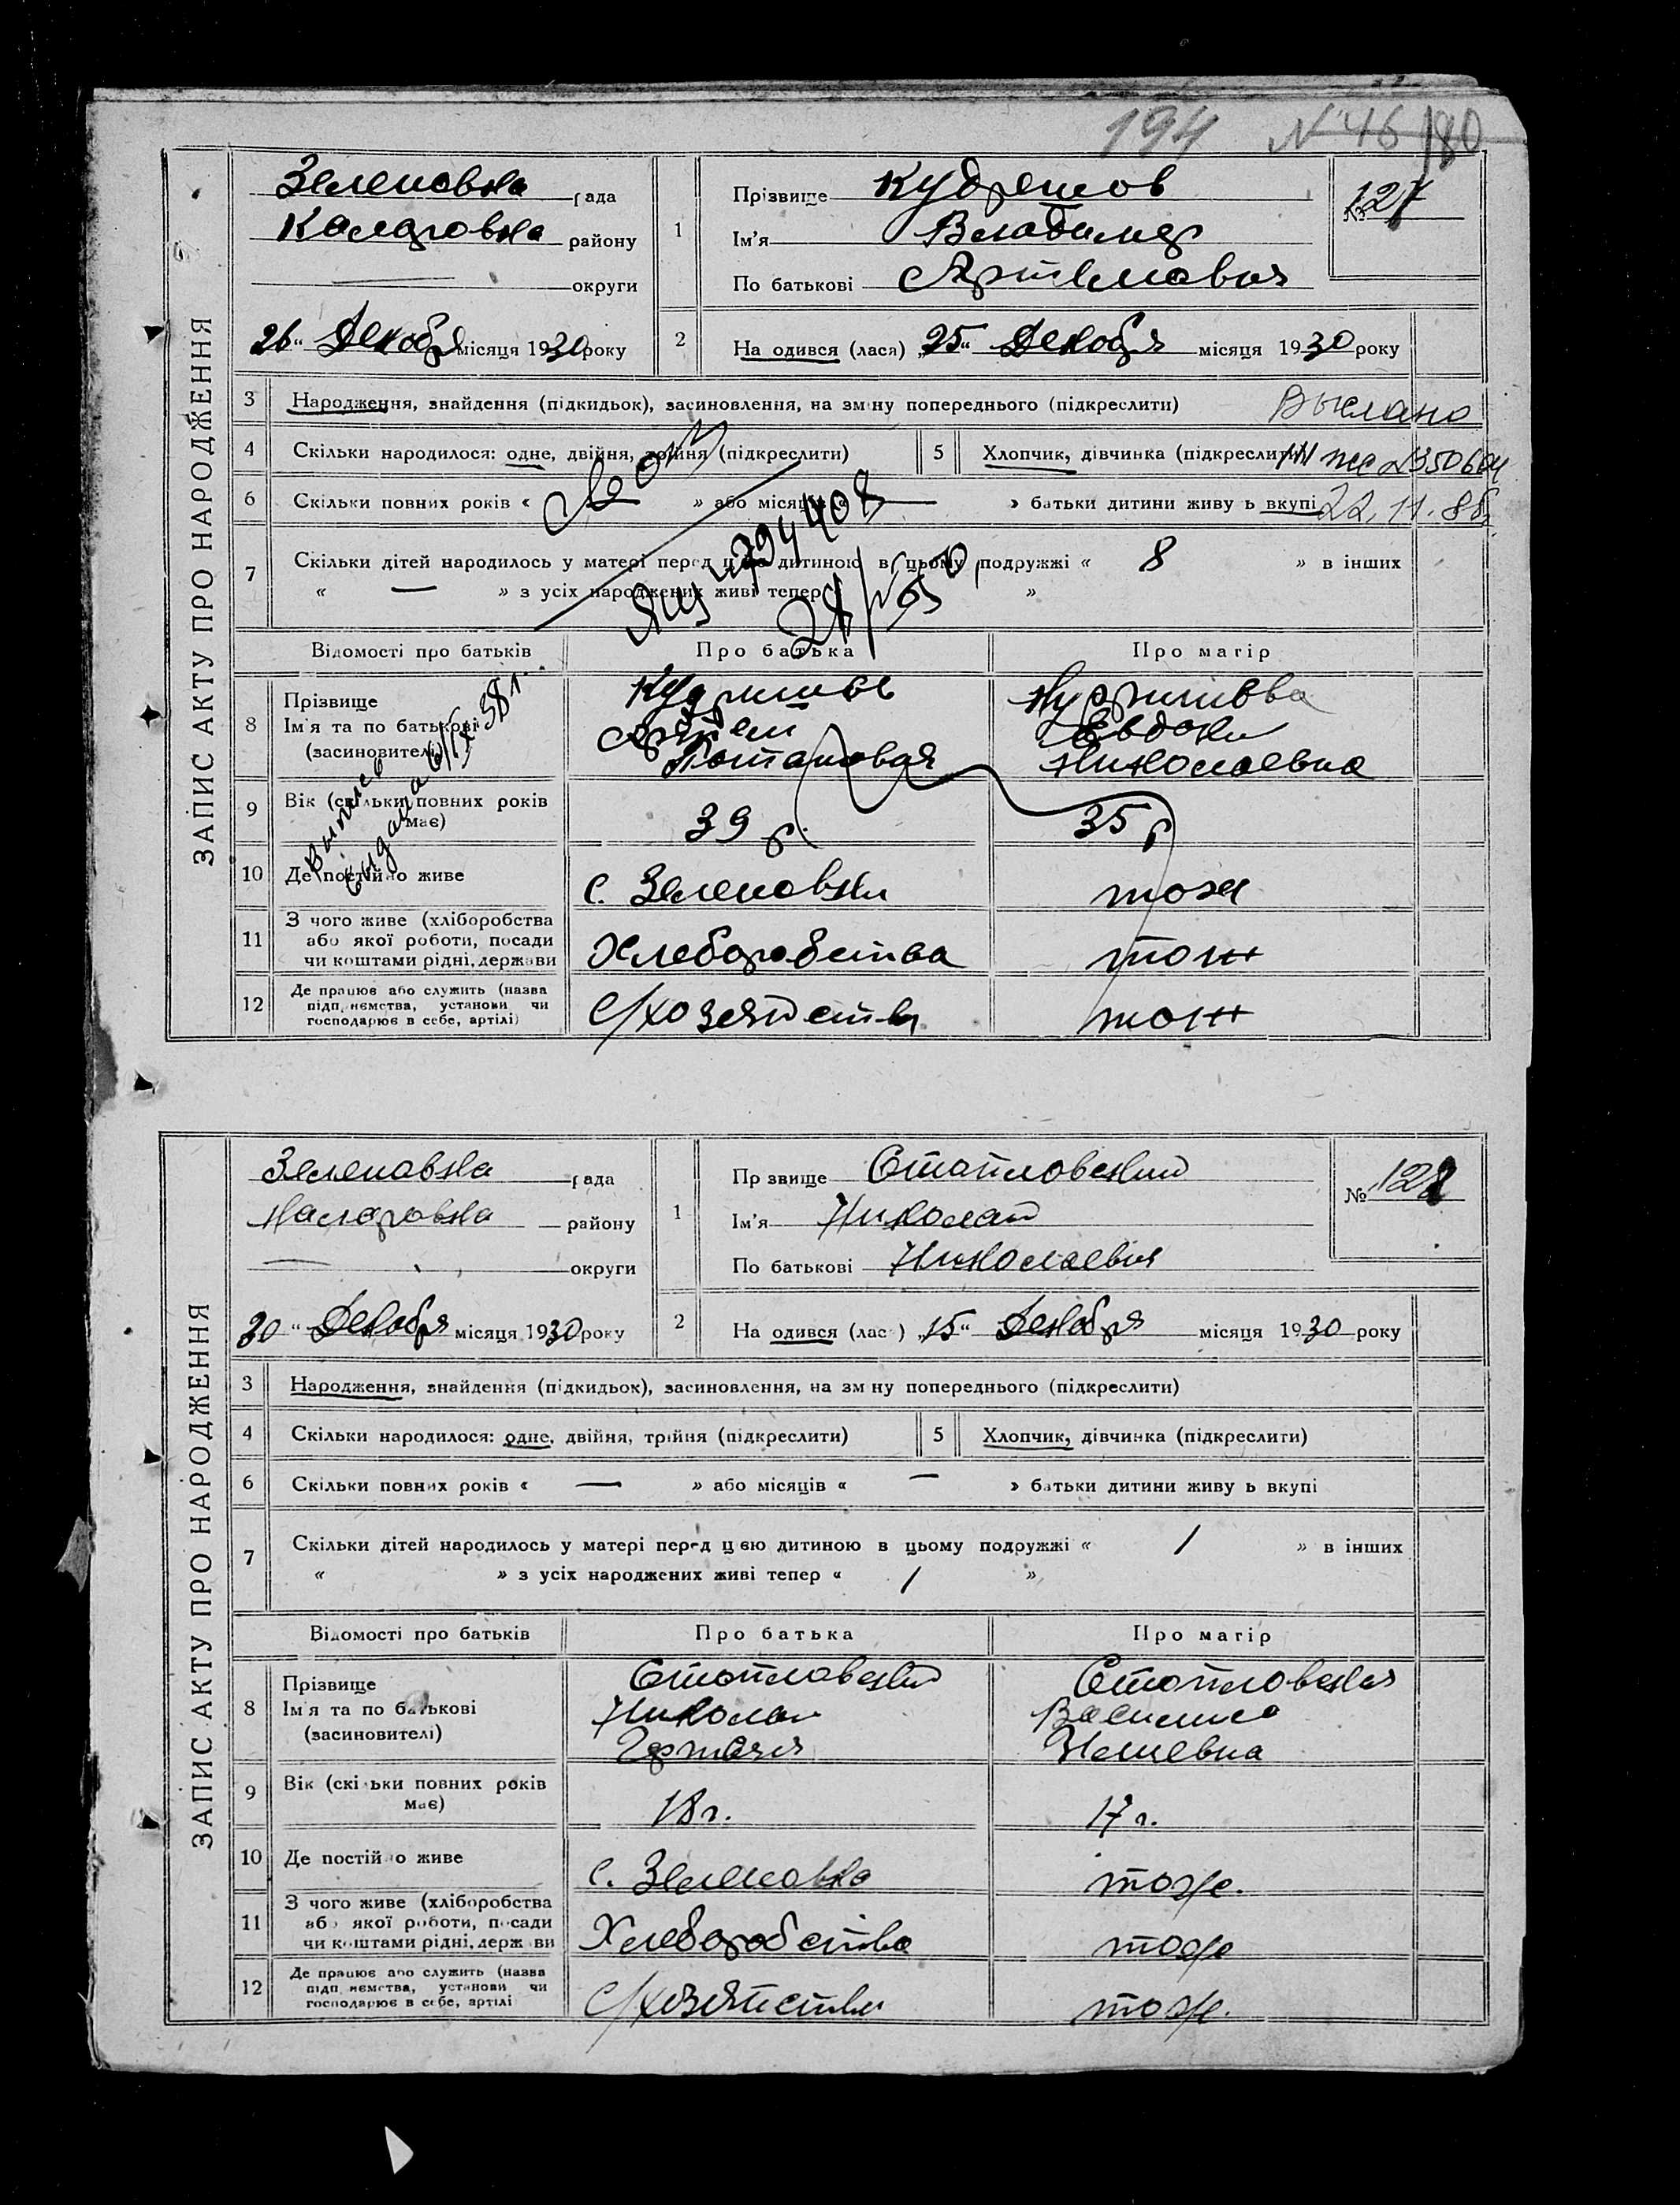 194 N 46/80
ЗАПИС АКТУ ПРО НАРОДЖЕННЯ
Зеленовка рада
Каларовка району
округи
26 " Декобря місяця 1930 року
1
Прізвище Кудрешов
Ім'я Владимер
По батькові Артемович
№ 127
2
На одився (лася) „25" Декобря місяця 1930 року
3 Народження, знайдення (підкидьок), засиновлення, на зміну попереднього (підкреслити)
Выслано
4 Скільки народилося: одне, двійня, трійня (підкреслити)
5 Хлопчик, дівчинка (підкреслити)
6 Скільки повних років « » або місяців « — » батьки дитини живу ь вкупі
22.11.86
7 Скільки дітей народилось у матері перед цією дитиною в цьому подружжі « 8 » в інших
« — » з усіх народжених живі тепер « »
Відомості про батьків Про батька Про матір
8 Прізвище
Ім'я та по батькові
(засновителі)
Артем
Потапович
Евдоки
Николаевна
9 Вік (скільки повних років має)
39 г.
35 г
10 Де постійно живе
с. Зеленовки
тоже
11 З чого живе (хліборобства або якої роботи, посади чи коштами рідні, держави
Хлеборобства
тож
12 Де працює або служить (назва підприємства, установи чи господарює в себе, артілі)
С/хозяйстви
тож
ЗАПИС АКТУ ПРО НАРОДЖЕННЯ
Зеленавка рада
Каларовка району
— округи
30 " Декобря місяця 1930 року
1
Пр звище Стопловский
Ім'я Николай
По батькові Николаевич
№ 128
2
На одився (лас ) „15" Декобря місяця 1930 року
3 Народження, знайдення (підкидьок), засиновлення, на зм ну попереднього (підкреслити)
4 Скільки народилося: одне, двійня, трійня (підкреслити)
5 Хлопчик, дівчинка (підкреслити)
6 Скільки повних років « — » або місяців « — » батьки дитини живу ь вкупі
7 Скільки дітей народилось у матері перед цією дитиною в цьому подружжі « 1 » в інших
« » з усіх народжених живі тепер « 1 »
Відомості про батьків Про батька Про матір
8 Прізвище
Ім'я та по батькові
(засиновителі)
Стопловский
Николаи
Стопловская
Василиса
9 Вік (скі ьки повних років має)
18 г.
17 г.
10 Де постійно живе
с. Зеленовка
тоже.
11 З чого живе (хліборобства або якої роботи, посади чи коштами рідні, держави
Хлеборобства
тоже
12 Де працює або служить (назва підприємства, установи чи господарює в себе, артілі
С/хозяйстви
тоже.